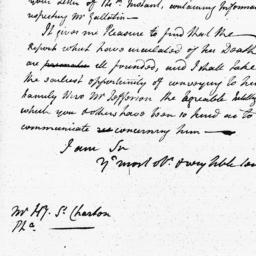 your letter of 14th Instant, containing Informa
respecting Mr Gallatin —
It gives me Pleasure to find that the
Reports which have circulated of his Death
are ill founded, and I shall take
the earliest opportunity of conveying to his
Family thro Mr Jefferson the agreeable
which you & others have been so kind as to
communicate concerning him —
I am Sir
Yr most Obt. & very hble
Mr Hy. St. Charlton
Pha.